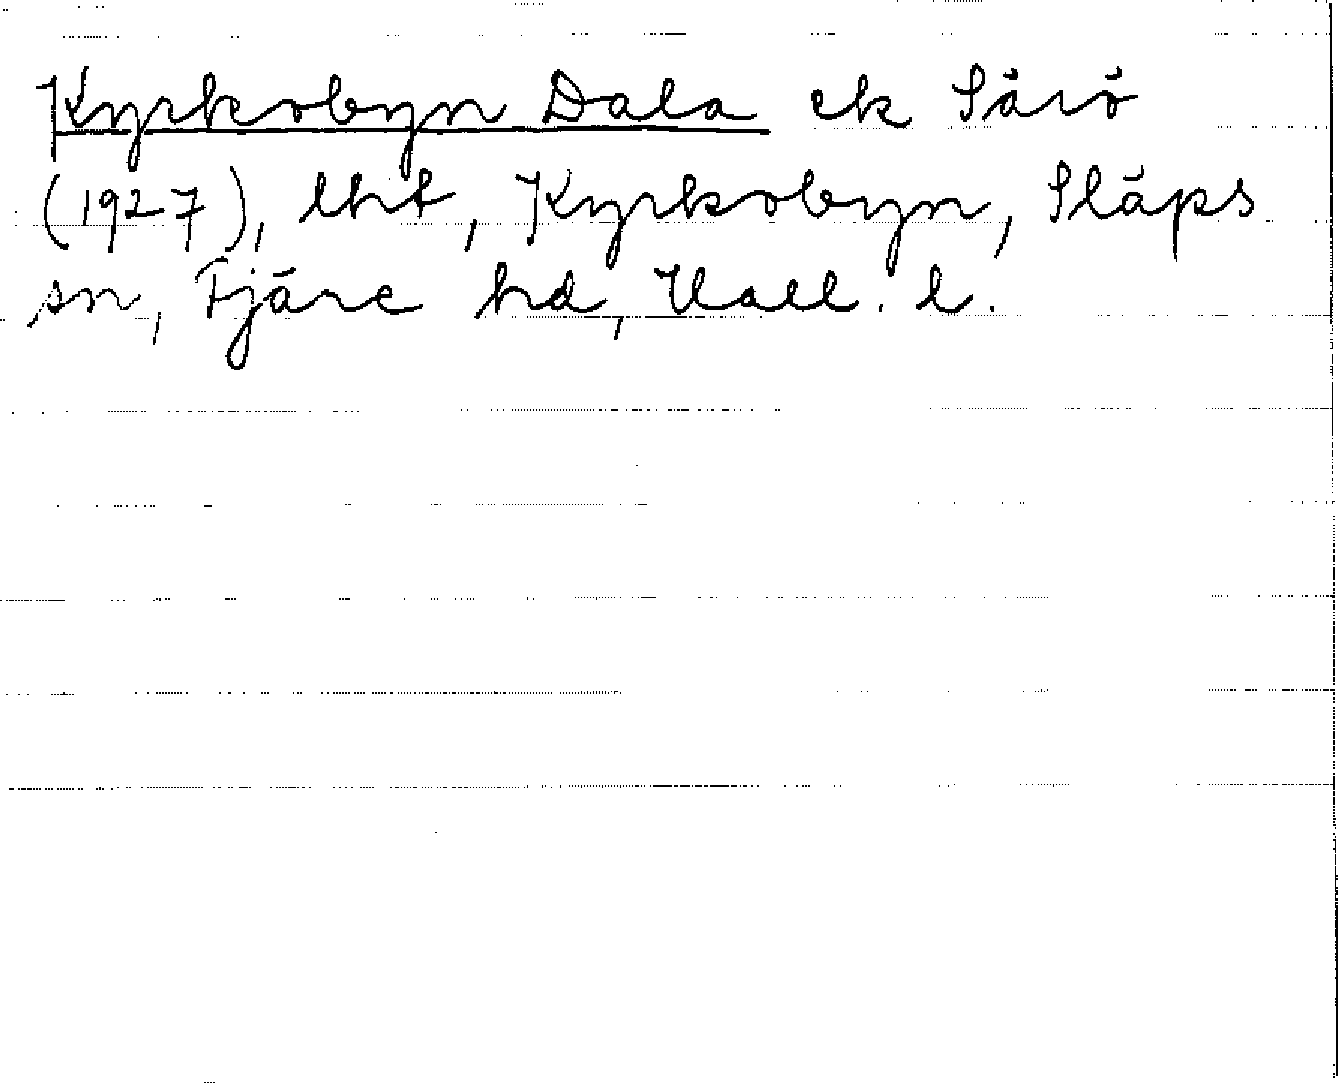 Kyrkobyn Dala ek Särö
(1927), lht, Kyrkobyn, Släps
sn, Fjäre hd, Hall. l.